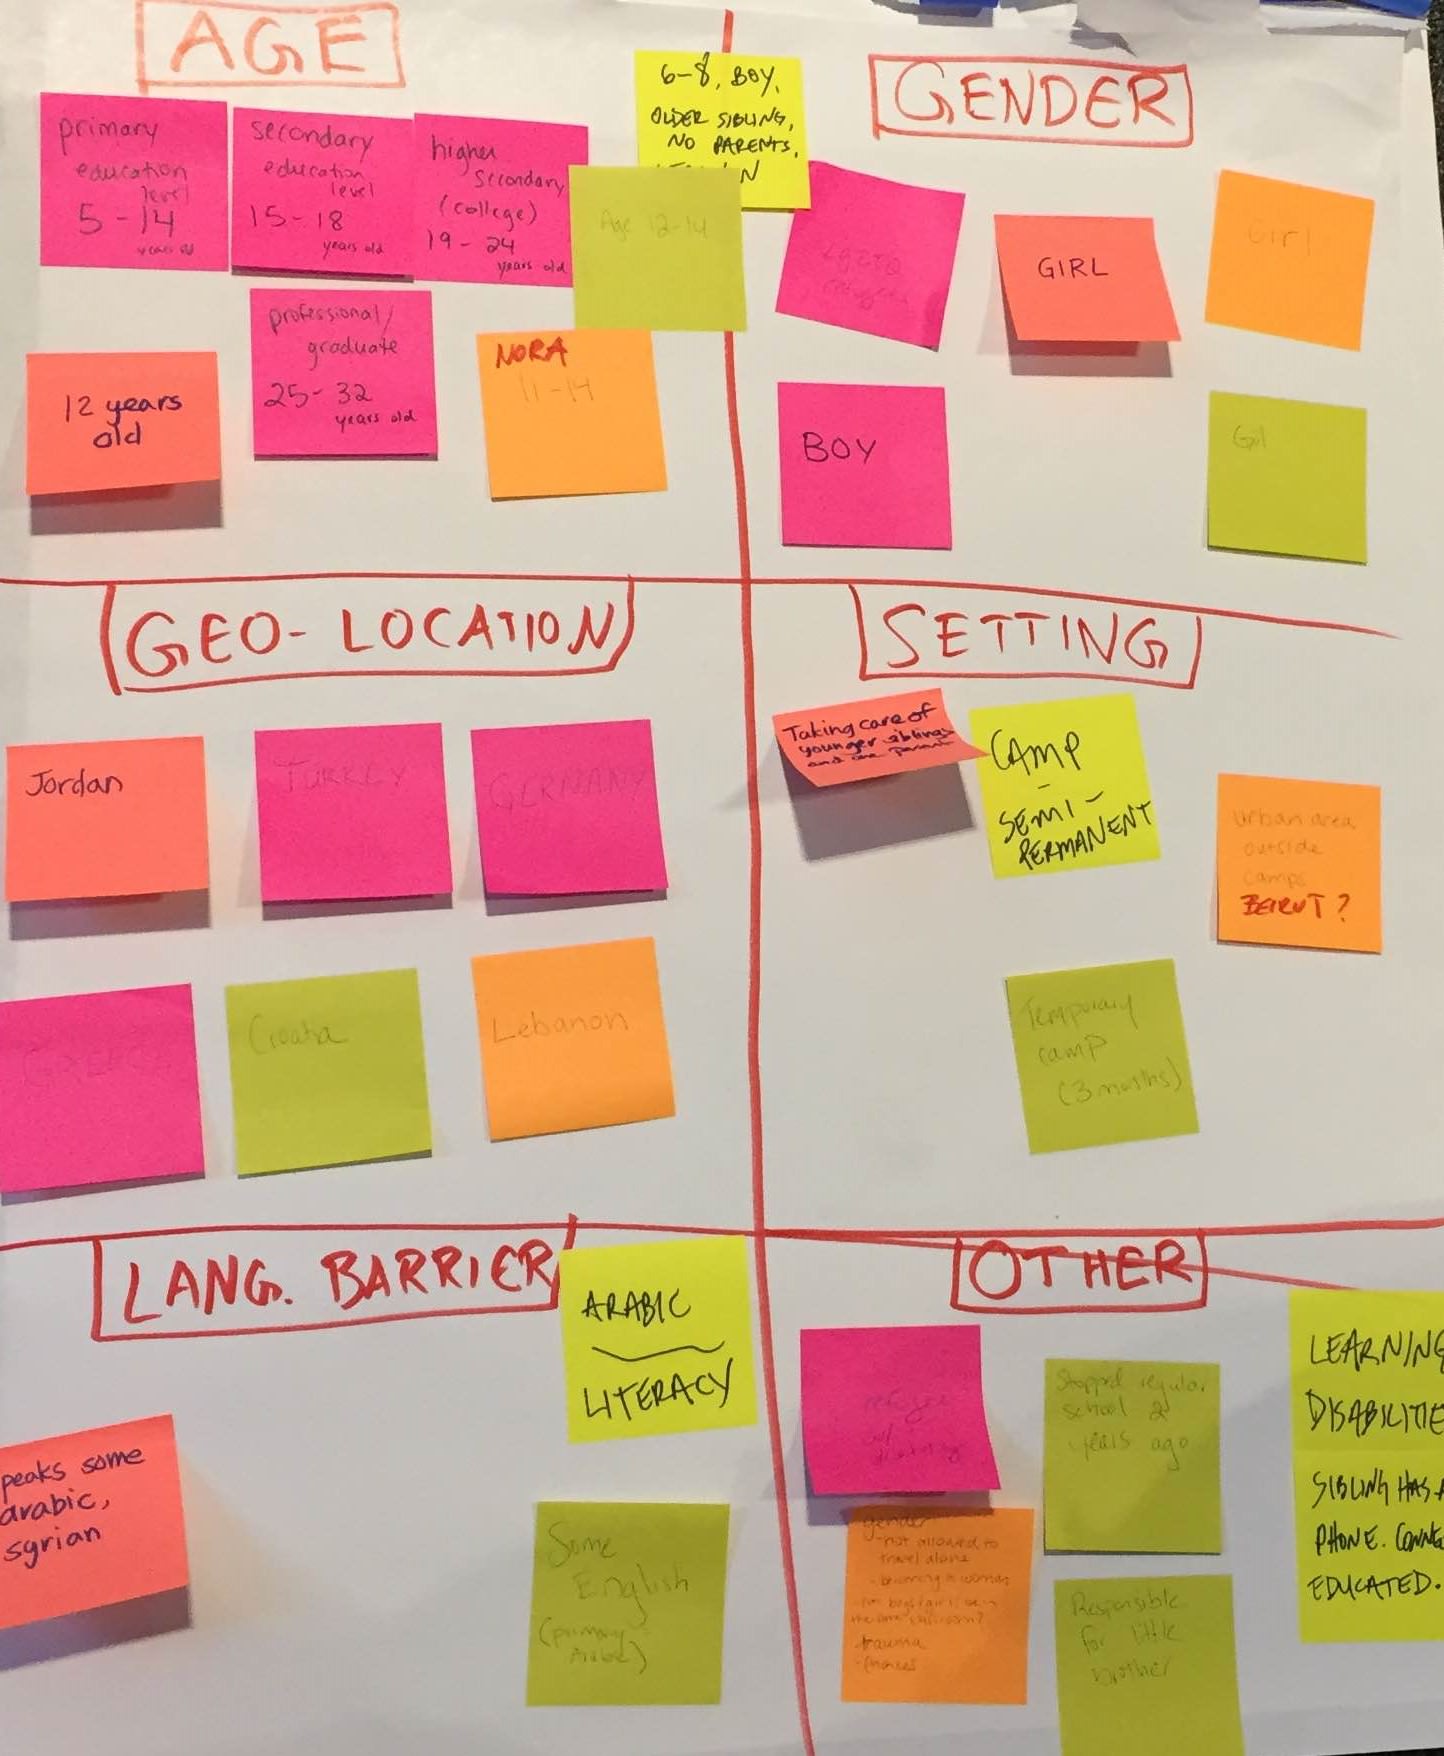 AGE
primary
education
level
5-14
years old
secondary
education
level
15-18
years old
higher
secondary
(college)
19-24
years old
Age 12-14
6-8, BOY,
OLDER SIBLING,
NO PARENTS,
12 years
old
professional/
graduate
25-32
years old
NORA
11-14
GENDER
LGBTQ
refugees
GIRL
Girl
BOY
Girl
GEO-LOCATION
Jordan
TURKEY
GERMANY
GREECE
Croatia
Lebanon
SETTING
Taking care of
younger siblings
and one parent
CAMP
-
SEMI-
PERMANENT
Urban area
outside
camps
BEIRUT?
Temporary
camp
(3 months)
LANG. BARRIER
ARABIC
LITERACY
peaks some
arabic,
syrian
Some
English
(primary
Arabic)
OTHER
refugee
w/
Stopped regular
school 2
years ago
LEARNING
DISABILITIE
SIBLING HAS A
PHONE. CONNE
EDUCATED.
gender
-not allowed to
travel alone
-becoming a woman
trauma
Responsible
for little
brother